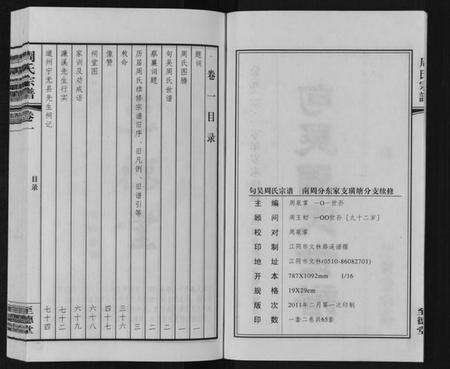 周氏宗譜
卷一
目录
至德堂
卷一目录
题词 一
周氏图腾 一
句吴周氏世谱 二
蔡襄词题 二
历届周氏雄修宗谱旧序、旧凡例、旧谱引等 三
敕命 三十六
像赞 四十七
祠堂图 六十八
家训及劝戒语 六十九
濂溪先生行实 七十二
道州宁尤县先生祠记 七十四
句吴周氏宗谱 南周分东家支璜塘分支续修
主编
一〇一世孙
顾问 周玉初 一〇〇世孙 [九十二岁]
校对
印制 江阴市文林
地址 江阴市文林(0510-86082701)
开本 787X1092mm 1/16
规格 19X29cm
版次 2011年二月第一次印制
印数 一套二卷共65套